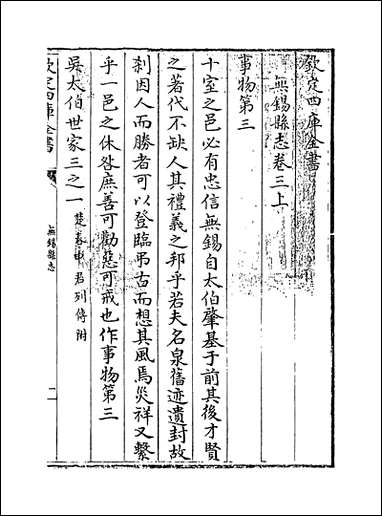 欽定四庫全書
無錫縣志卷三上
事物第三
十室之邑必有忠信無錫自太伯肇基于前其後才賢
之著代不缺人其禮義之邦乎若夫名泉舊迹遺封故
刹因人而勝者可以登臨弔古而想其風焉災祥又繫
乎一邑之休咎庶善可勸惡可戒也作事物第三
吳太伯世家三之一 楚春申君列傳附
欽定四庫全書
無錫縣志
一